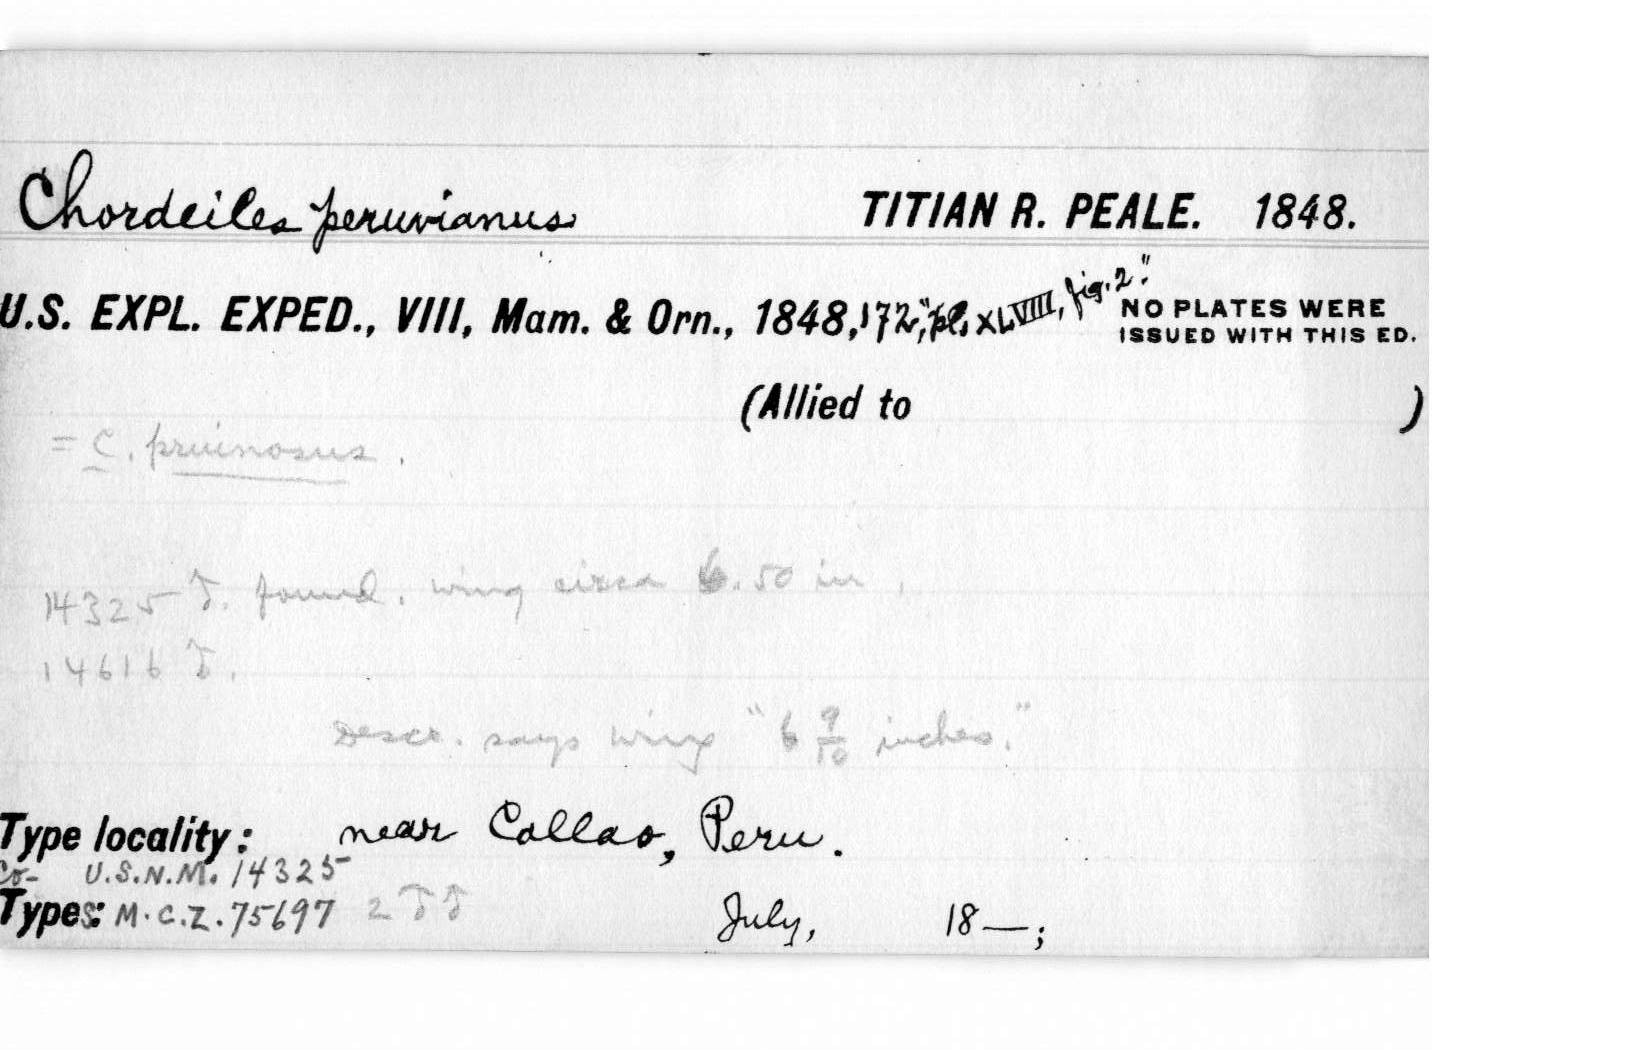 Chordeiles peruvianus TITIAN R. PEALE. 1848.
U.S. EXPL. EXPED., VIII, Mam. & Orn., 1848, 172, "pl. XLVIII, fig. 2." NO PLATES WERE
ISSUED WITH THIS ED.
(Allied to )
= C. pruinosus.
14325 ♂. found. wing circa 6.50 in.
14616 ♂.
Descr. says wing "6 9/10 inches."
Type locality: near Callao, Peru.
Co- U.S.N.M. 14325
Types: M.C.Z. 75697 2 ♂♂ July, 18—;